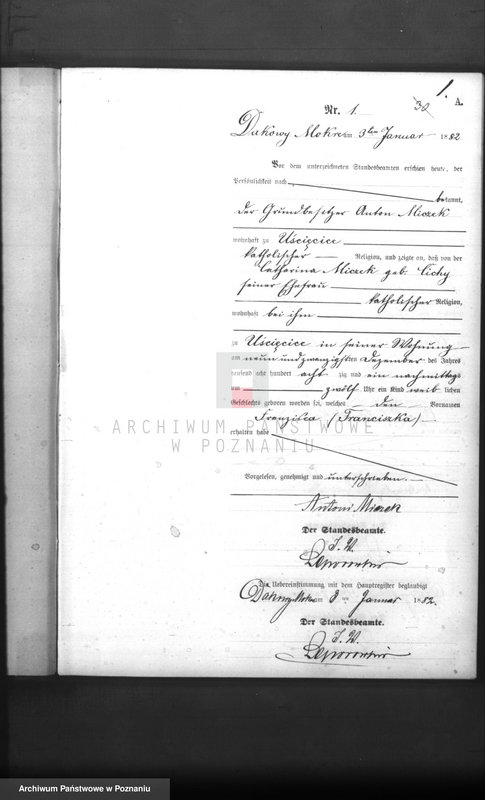 1.
Nr. 1. 30 A.
Dakowy Mokre am 3ten Januar 1882
Vor dem unterzeichneten Standesbeamten erschien heute, der
Persönlichkeit nach
bekannt,
der Grundbesitzer Anton Miczek
wohnhaft zu Uścięcice
katholischer Religion, und zeigte an, daß von der
Catharina Miczek geb. Cichy
seiner Ehefrau
katholischer Religion,
wohnhaft bei ihm
zu Uścięcice in seiner Wohnung
am neun und zwanzigsten Dezember des Jahres
tausend acht hundert acht zig und ein nachmittags
um zwölf Uhr ein Kind weib lichen
Geschlechts geboren worden sei, welches den Vornamen
Franzisca (Franciszka)
erhalten habe
ARCHIWUM PAŃSTWOWE
W POZNANIU
Vorgelesen, genehmigt und unterschrieben.
Antoni Miczek
Der Standesbeamte.
J. V.
Die Uebereinstimmung mit dem Hauptregister beglaubigt
Dakowy Mokre am 3 ten Januar 1882.
Der Standesbeamte.
J. V.
Archiwum Państwowe w Poznaniu